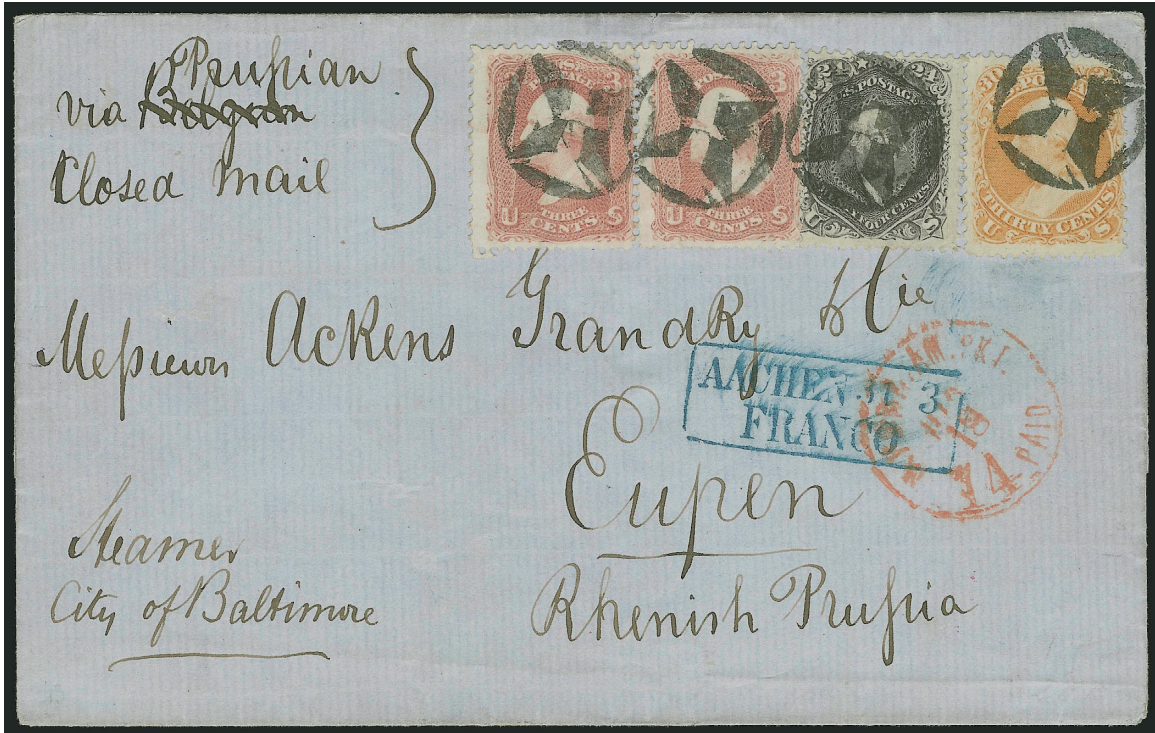 Prußian
via Belgian
Closed Mail
3 3
U.S. POSTAGE
U S
THREE
CENTS
3
POSTAGE
U S
THREE
CENTS
24 24
U.S. POSTAGE
FOUR CENTS
U S
30
THIRTY CENTS
U S
Meßieurs Ackens Grandry & Cie
AACHEN 31 3
FRANCO
AM. PKT.
18
PAID
14
Eupen
Rhenish Prußia
Steamer
City of Baltimore